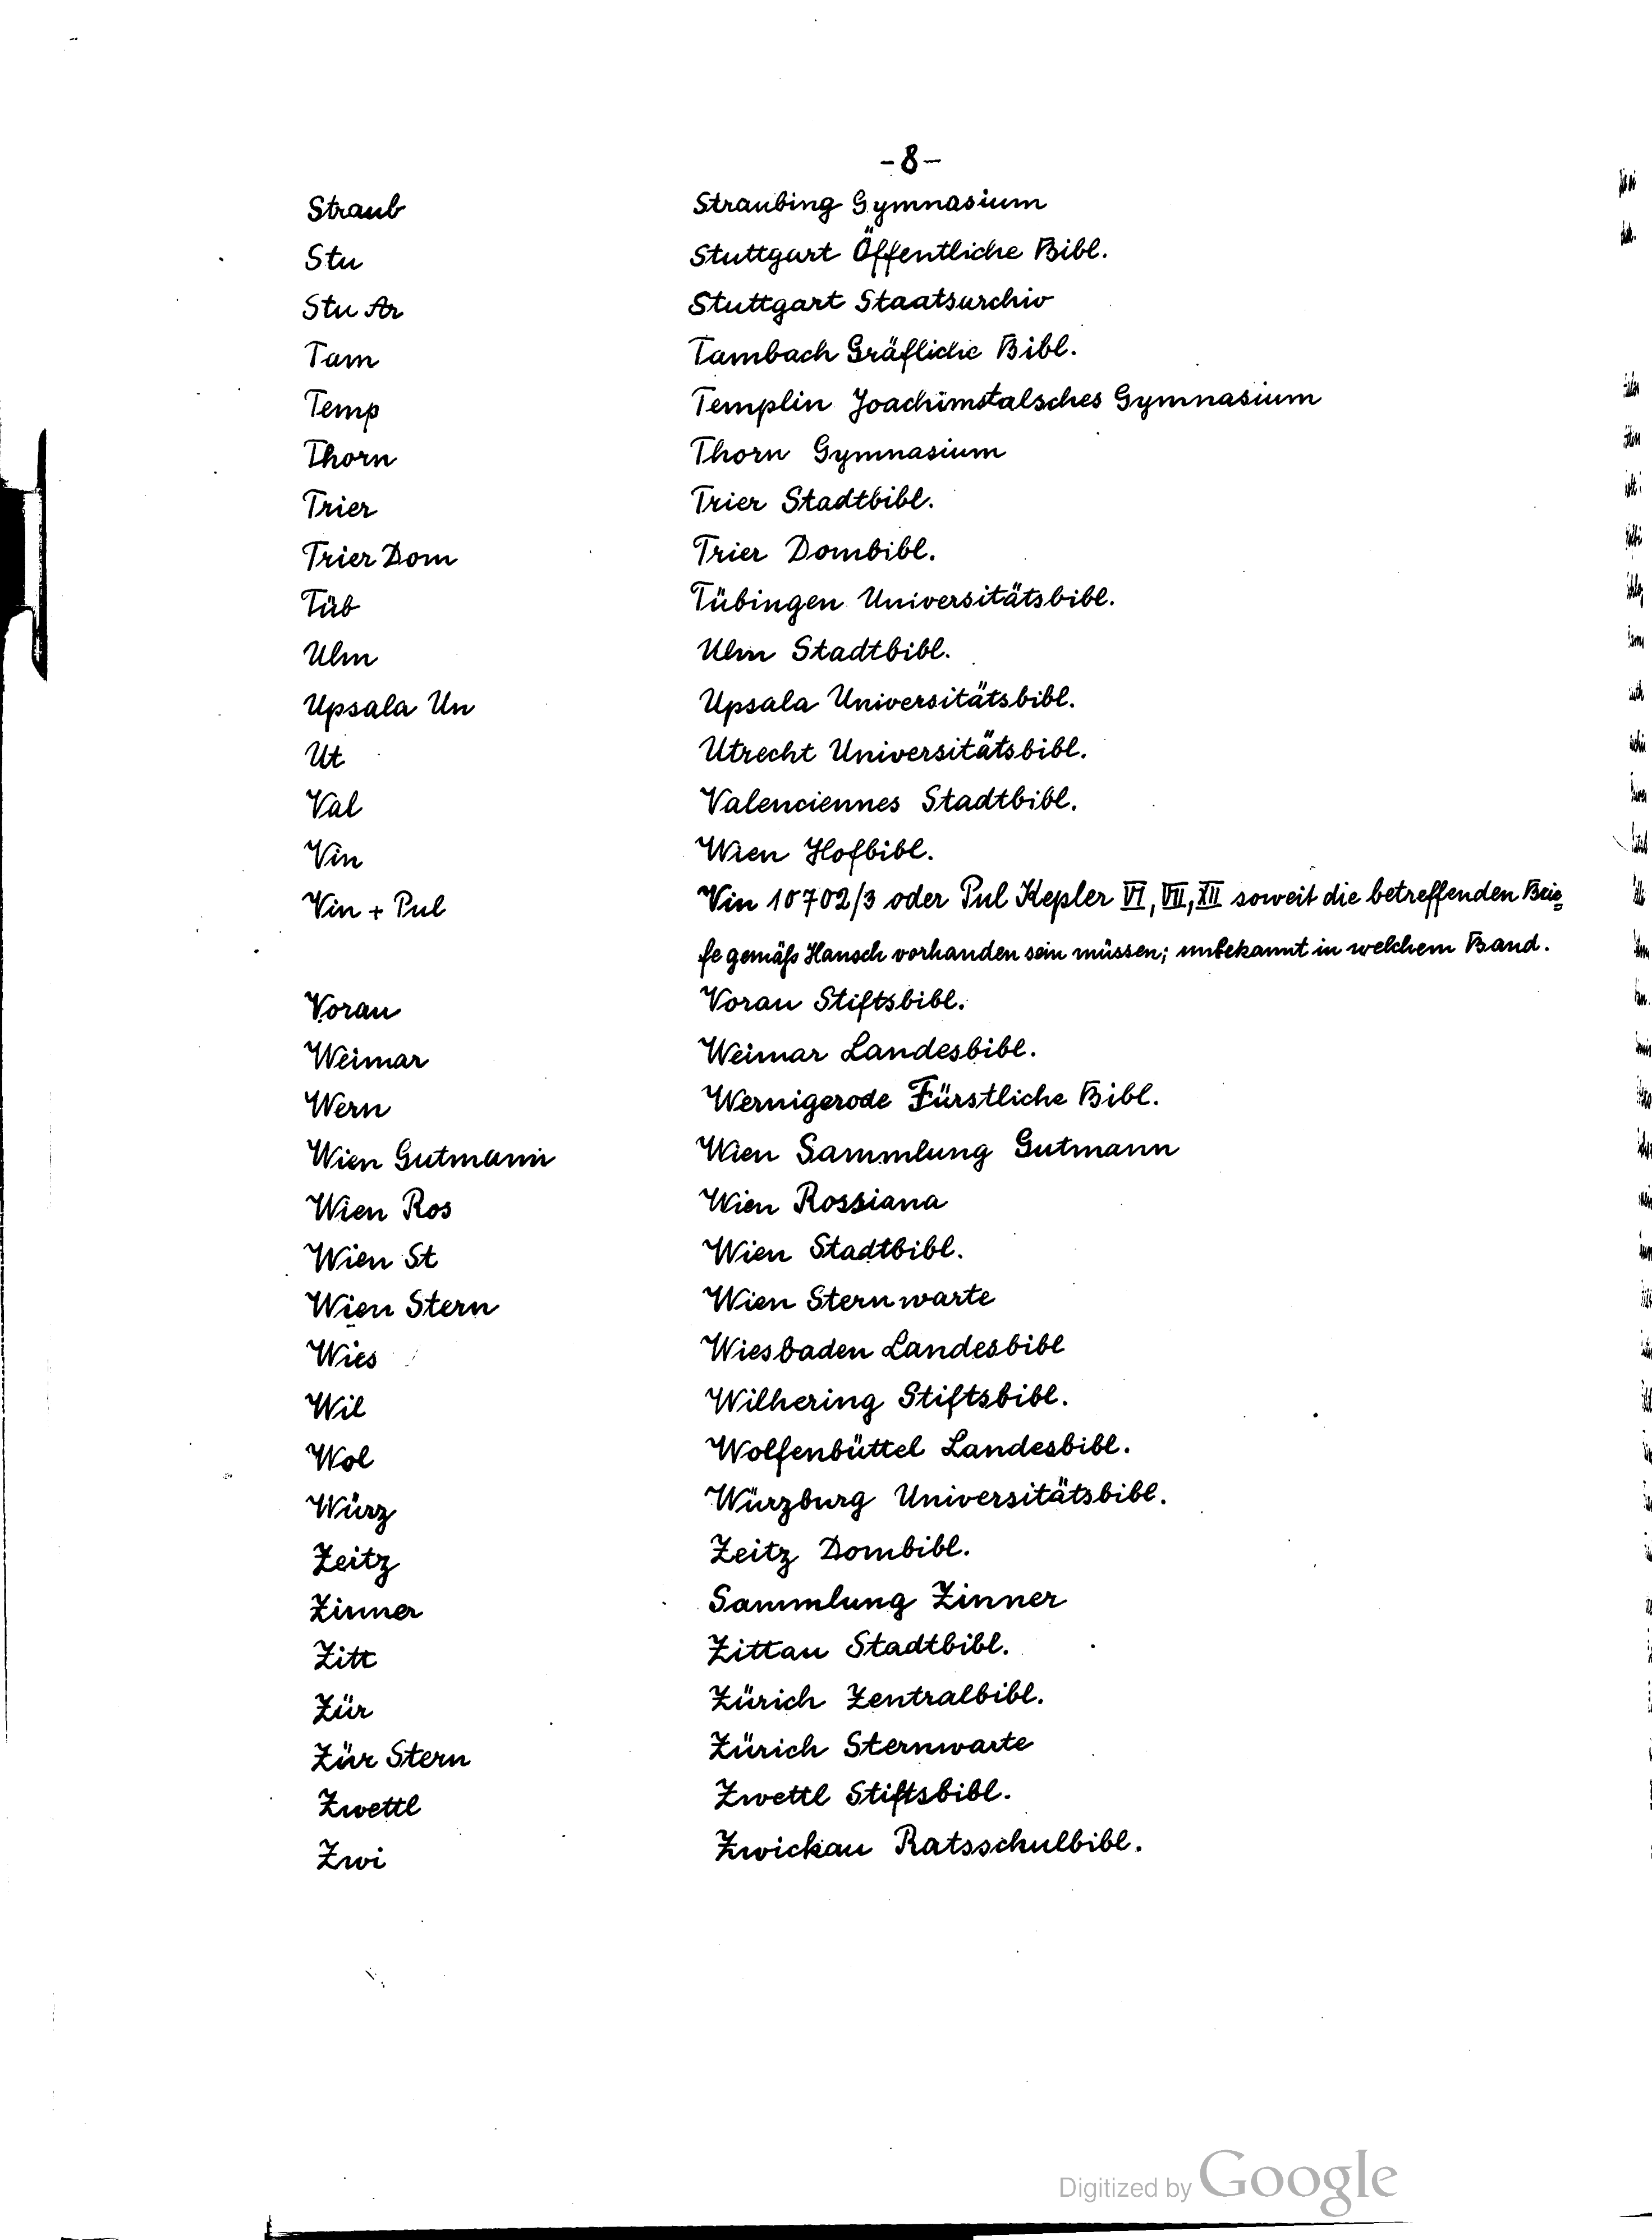 -8-
Straub Straubing Gymnasium
Stu Stuttgart Öffentliche Bibl.
Stu Ar Stuttgart Staatsarchiv
Tam Tambach Gräfliche Bibl.
Temp Templin Joachimstalsches Gymnasium
Thorn Thorn Gymnasium
Trier Trier Stadtbibl.
Trier Dom Trier Dombibl.
Tüb Tübingen Universitätsbibl.
Ulm Ulm Stadtbibl.
Upsala Un Upsala Universitätsbibl.
Ut Utrecht Universitätsbibl.
Val Valenciennes Stadtbibl.
Vin Wien Hofbibl.
Vin + Pul Vin 10702/3 oder Pul Kepler VI, VII, XII soweit die betreffenden Brie=
fe gemäß Hansch vorhanden sein müssen; unbekannt in welchem Band.
Vorau Vorau Stiftsbibl.
Weimar Weimar Landesbibl.
Wern Wernigerode Fürstliche Bibl.
Wien Gutmann Wien Sammlung Gutmann
Wien Ros Wien Rossiana
Wien St Wien Stadtbibl.
Wien Stern Wien Sternwarte
Wies Wiesbaden Landesbibl
Wil Wilhering Stiftsbibl.
Wol Wolfenbüttel Landesbibl.
Würz Würzburg Universitätsbibl.
Zeitz Zeitz Dombibl.
Zinner Sammlung Zinner
Zitt Zittau Stadtbibl.
Zür Zürich Zentralbibl.
Zür Stern Zürich Sternwarte
Zwettl Zwettl Stiftsbibl.
Zwi Zwickau Ratsschulbibl.
Digitized by Google